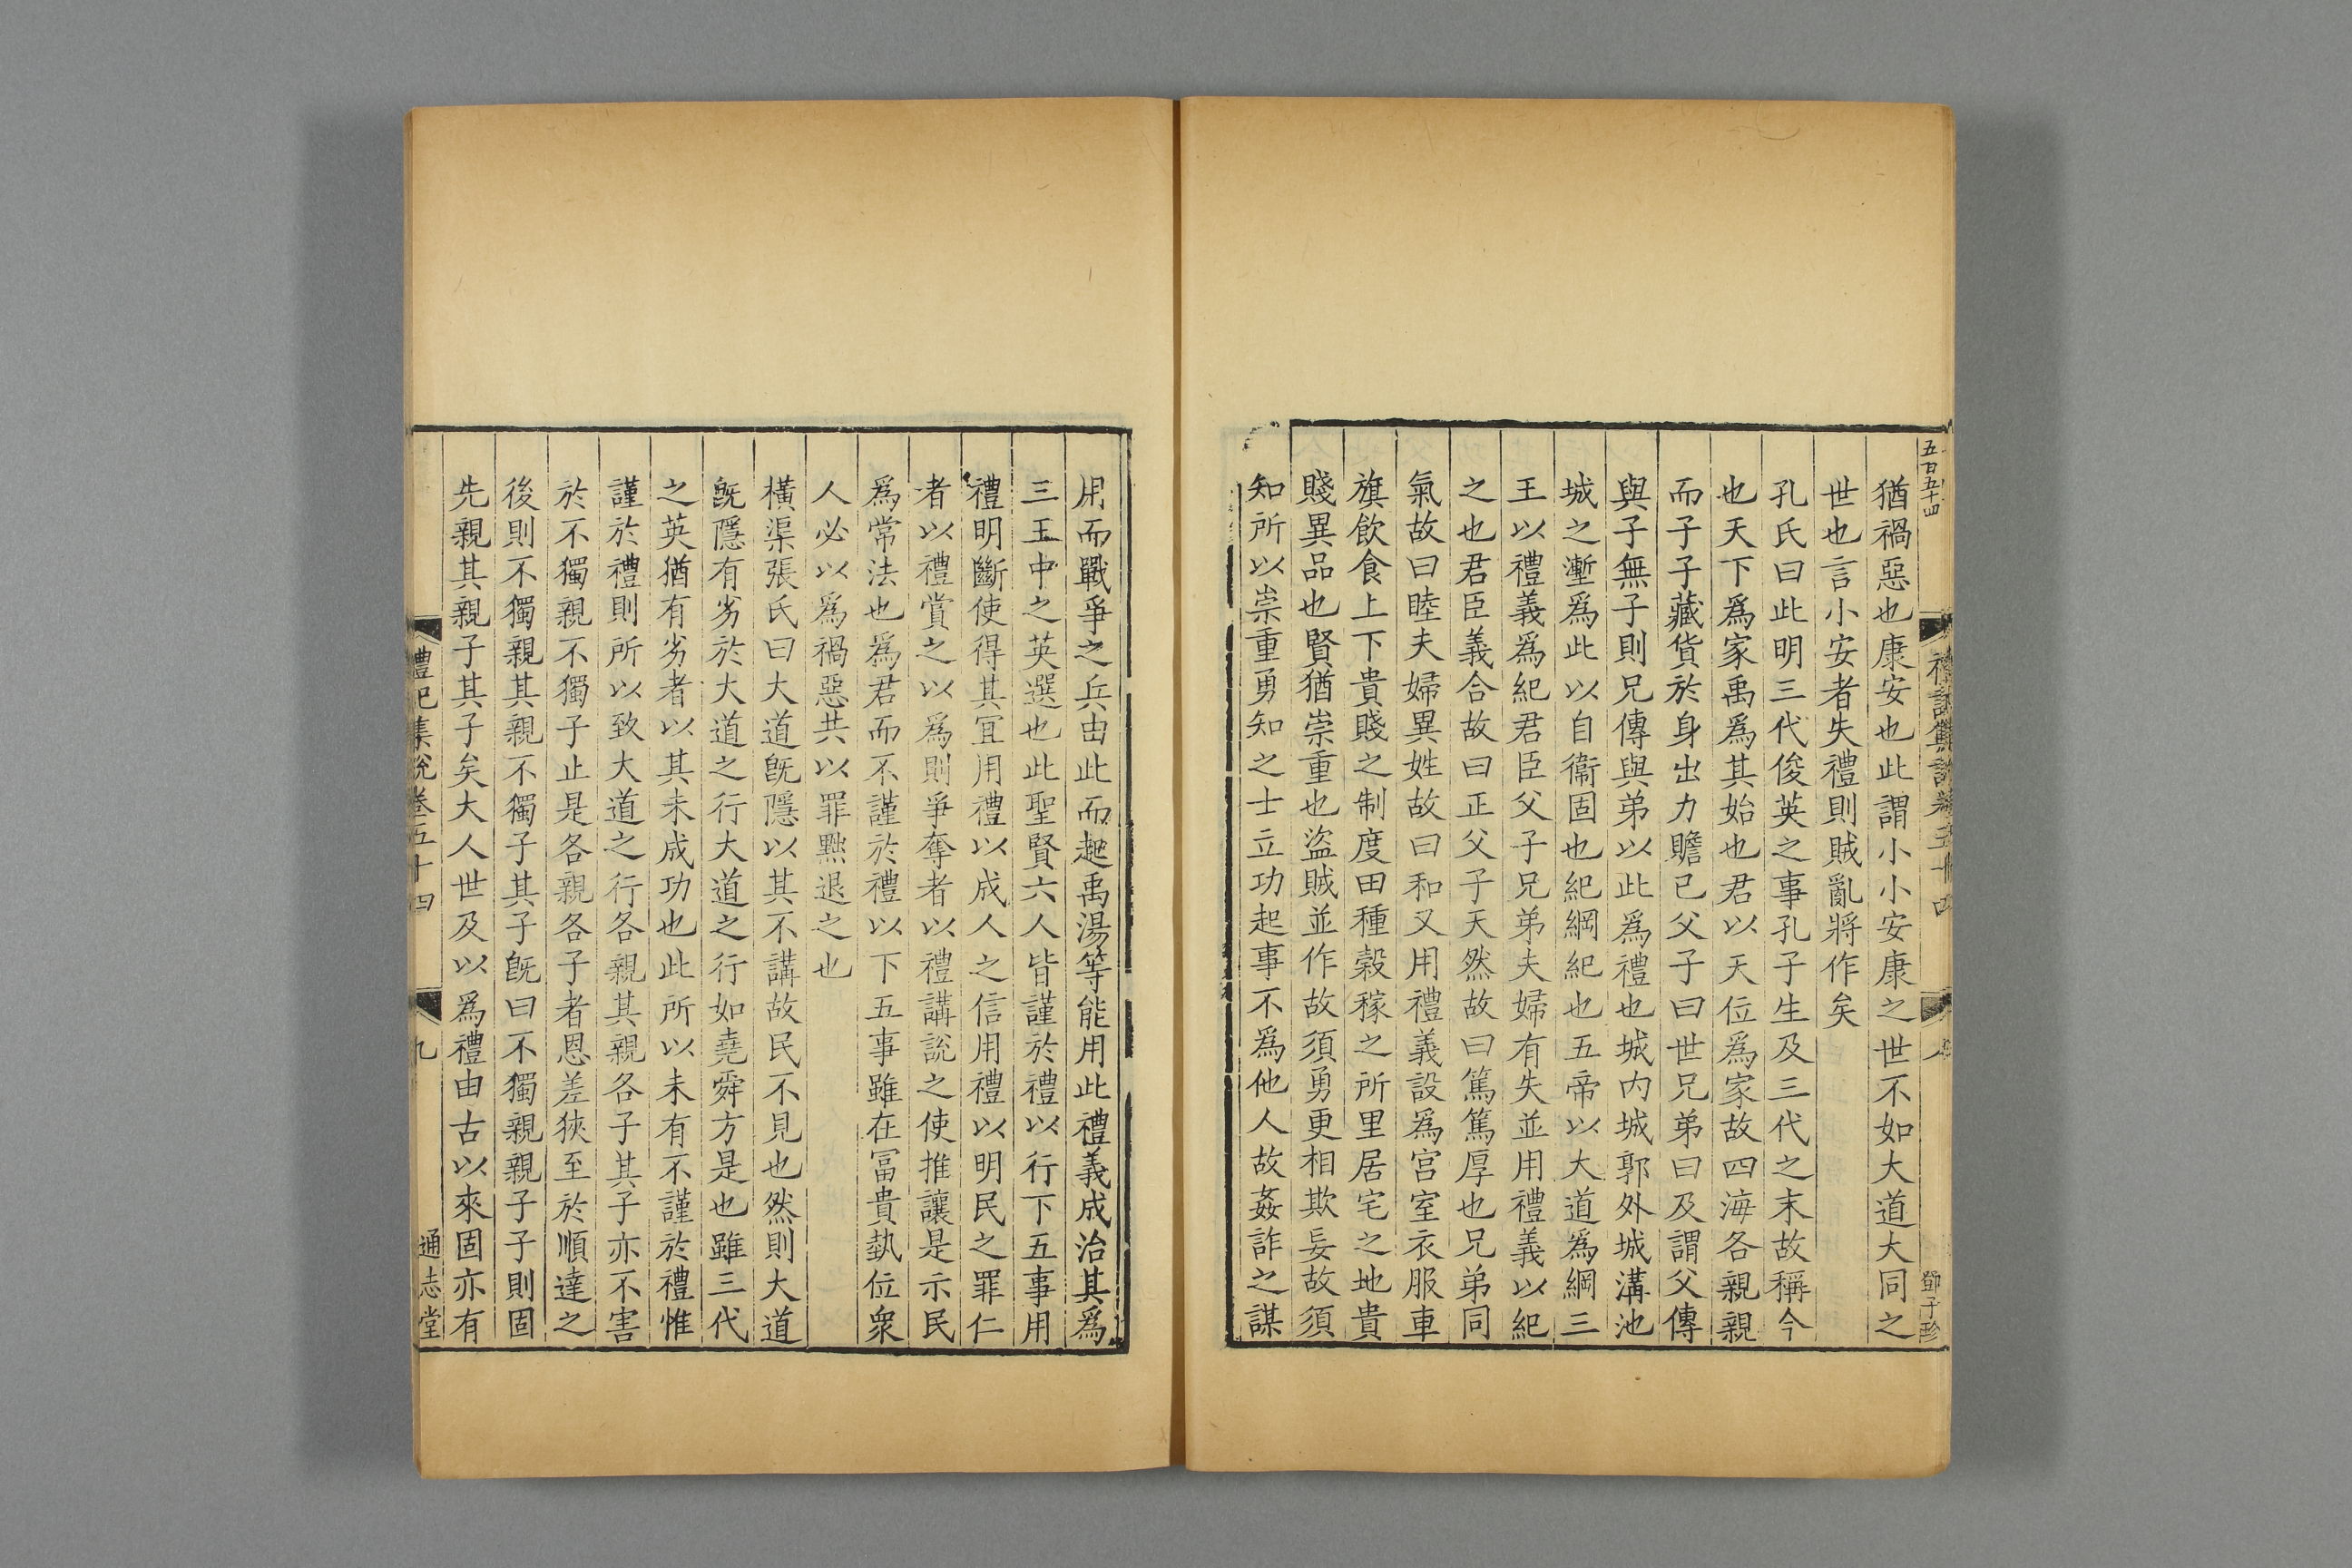 五百五十四
禮記集說卷五十四
鄧子珍
猶禍惡也康安也此謂小小安康之世不如大道大同之
世也言小安者失禮則賊亂將作矣
孔氏曰此明三代俊英之事孔子生及三代之末故稱今
也天下爲家禹爲其始也君以天位爲家故四海各親親
而子子藏貨於身出力贍己父子曰世兄弟曰及謂父傳
與子無子則兄傳與弟以此爲禮也城内城郭外城溝池
城之塹爲此以自衞固也紀綱紀也五帝以大道爲綱三
王以禮義爲紀君臣父子兄弟夫婦有失並用禮義以紀
之也君臣義合故曰正父子天然故曰篤篤厚也兄弟同
氣故曰睦夫婦異姓故曰和又用禮義設爲宫室衣服車
旗飲食上下貴賤之制度田種榖稼之所里居宅之地貴
賤異品也賢猶崇重也盜賊並作故須勇更相欺妄故須
知所以崇重勇知之士立功起事不爲他人故姦詐之謀
用而戰爭之兵由此而起禹湯等能用此禮義成治其爲
三王中之英選也此聖賢六人皆謹於禮以行下五事用
禮明斷使得其宜用禮以成人之信用禮以明民之罪仁
者以禮賞之以爲則爭奪者以禮講說之使推讓是示民
爲常法也爲君而不謹於禮以下五事雖在冨貴埶位衆
人必以爲禍惡共以罪黜退之也
橫渠張氏曰大道旣隱以其不講故民不見也然則大道
旣隱有劣於大道之行大道之行如堯舜方是也雖三代
之英猶有劣者以其未成功也此所以未有不謹於禮惟
謹於禮則所以致大道之行各親其親各子其子亦不害
於不獨親不獨子止是各親各子者恩差狹至於順達之
後則不獨親其親不獨子其子旣曰不獨親親子子則固
先親其親子其子矣大人世及以爲禮由古以來固亦有
禮記集說卷五十四
九
通志堂